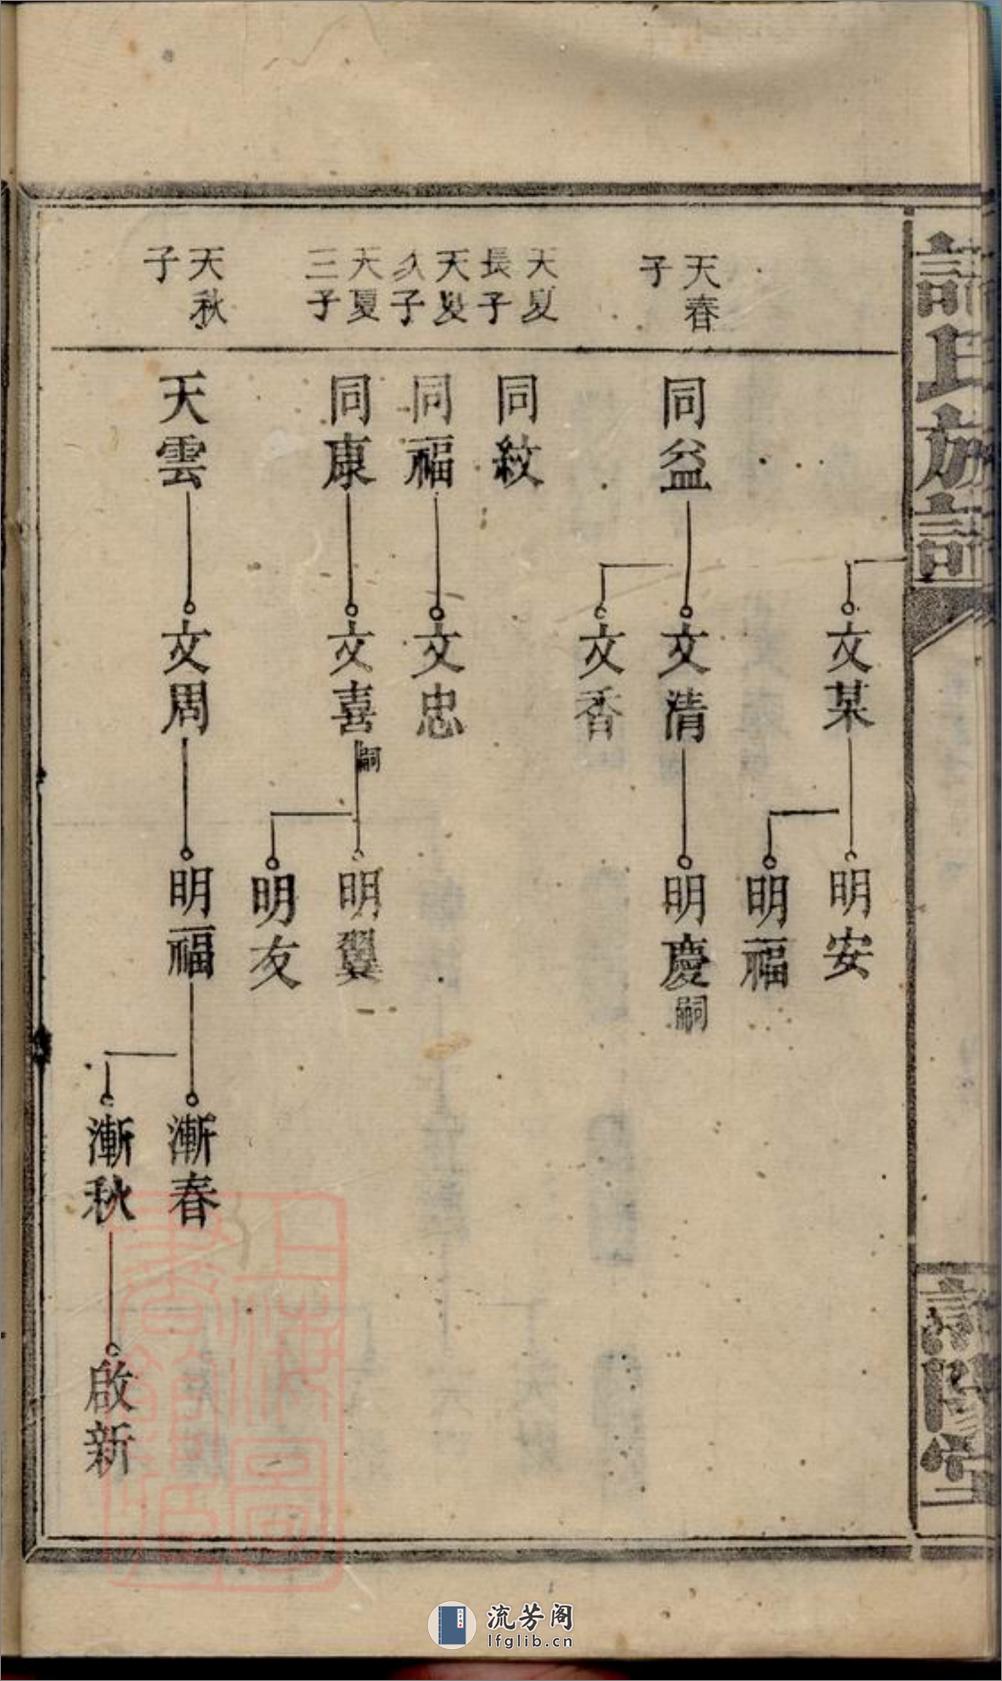 氏族譜
堂
文某
明安
明福
天春
子
同益
文清
明慶嗣
文香
天夏
長子
同紋
天夏
次子
同福
文忠
天夏
三子
同康
文喜嗣
明翼
明友
天秋
子
天雲
文周
明福
漸春
漸秋
啟新
上海圖
書館藏
流芳阁
lfglib.cn